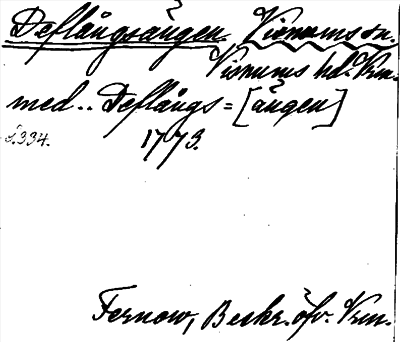 Deflångsängen. Visnums sn.
Visnums hd. Vrm.
med .. Deflångs = [ängen]
s. 334. 1773.
Fernow, Beskr. öfv. Vrm.